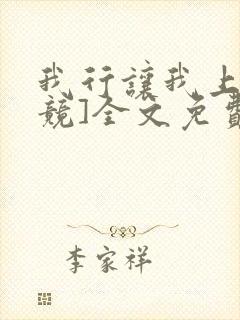 我行讓我上
競]全文免費
李家祥